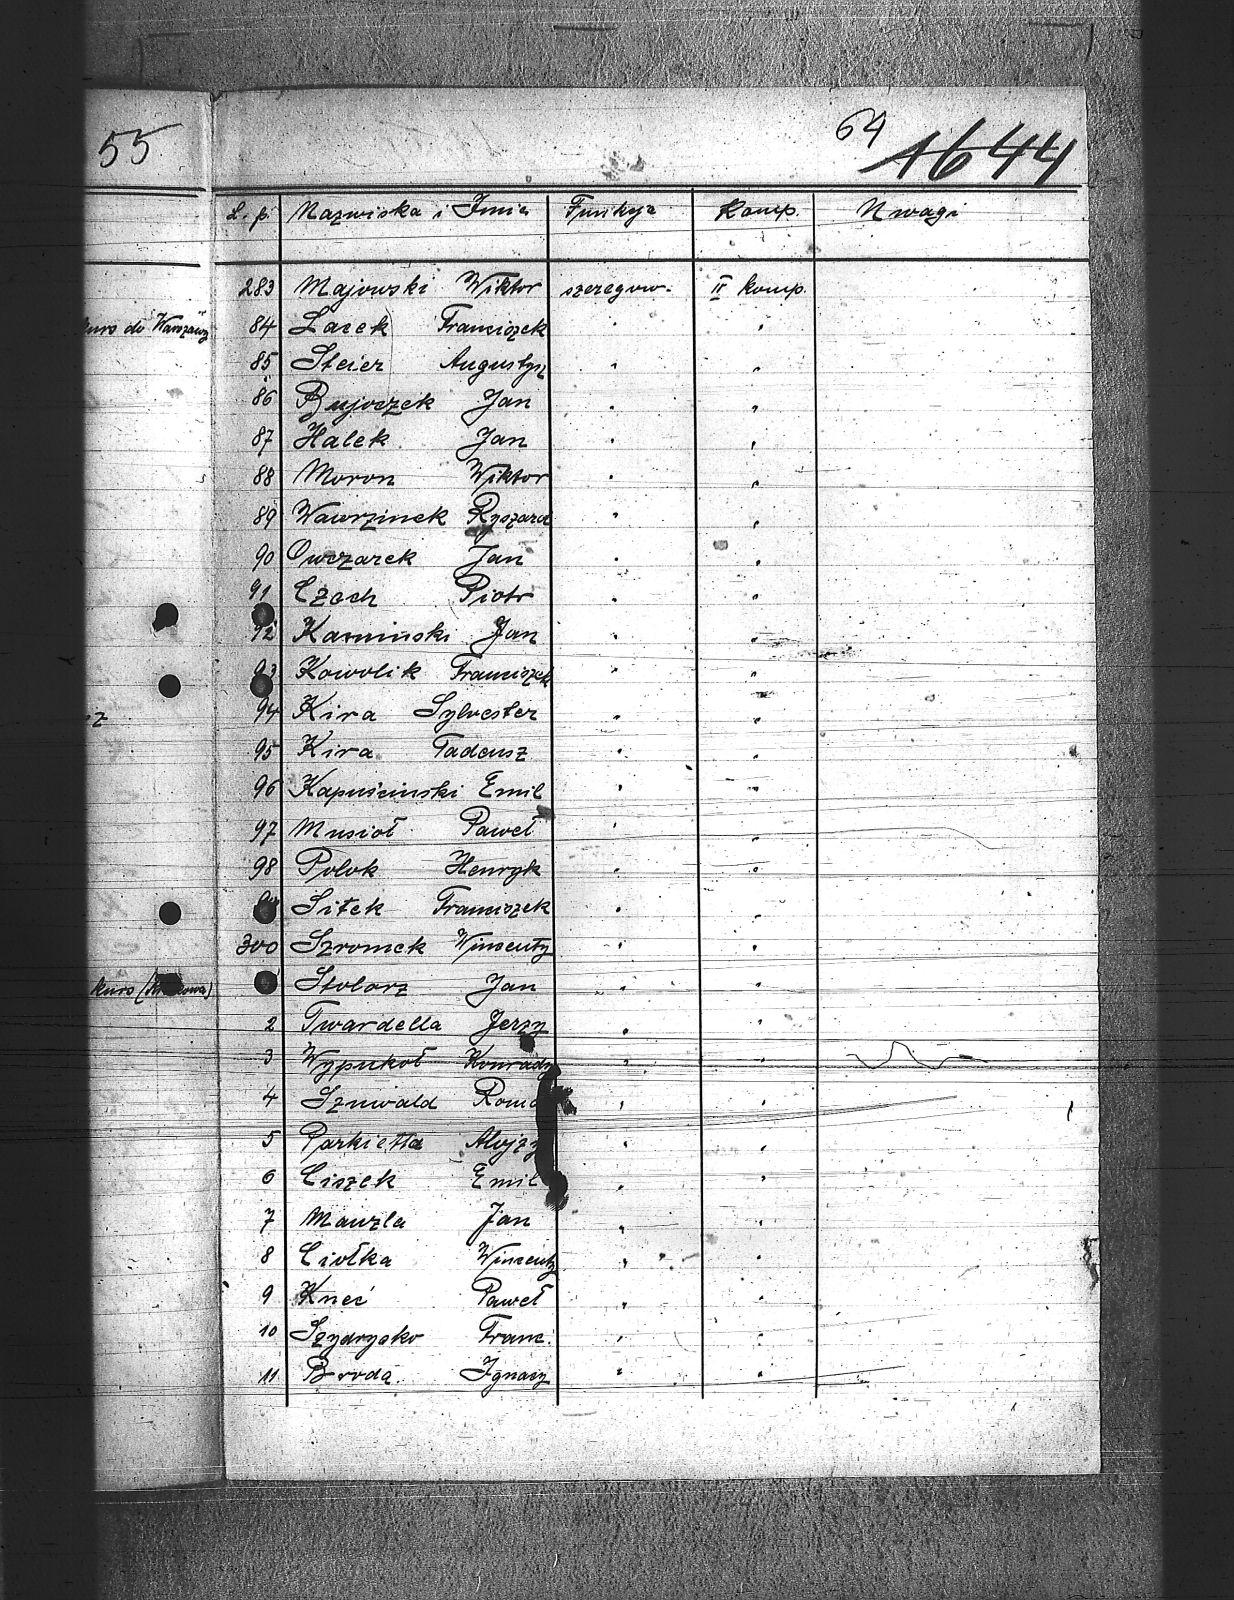 55
64
1644
L. p. Nazwiska i Imie Funkcja Komp. Uwagi
283 Majowski Wiktor szeregow. II komp.
kurs do Warszawy
84 Lacek Franciszek " "
85 Steier Augustyn " "
86 Bujoczek Jan " "
87 Halek Jan " "
88 Moron Wiktor " "
89 Wawrzinek Ryszard " "
90 Owczarek Jan " "
91 Czech Piotr " "
92 Kaminski Jan " "
93 Kowolik Franciszek " "
94 Kira Sylvester " "
95 Kira Tadeusz " "
96 Kapuścinski Emil " "
97 Musioł Paweł " "
98 Polok Henryk " "
Sitek Franciszek " "
300 Szromek Wincenty " "
kurs
Stolorz Jan " "
2 Twardella Jerzy " "
3 Wypukoł Konrady " "
4 Szuwald " "
5 Parkietta Alojzy " "
6 Ciszek Emil " "
7 Mauzla Jan " "
8 Ciołka Wincenty " "
9 Kneć Paweł " "
10 Szydrysko Franc. " "
11 Broda Ignacy " "